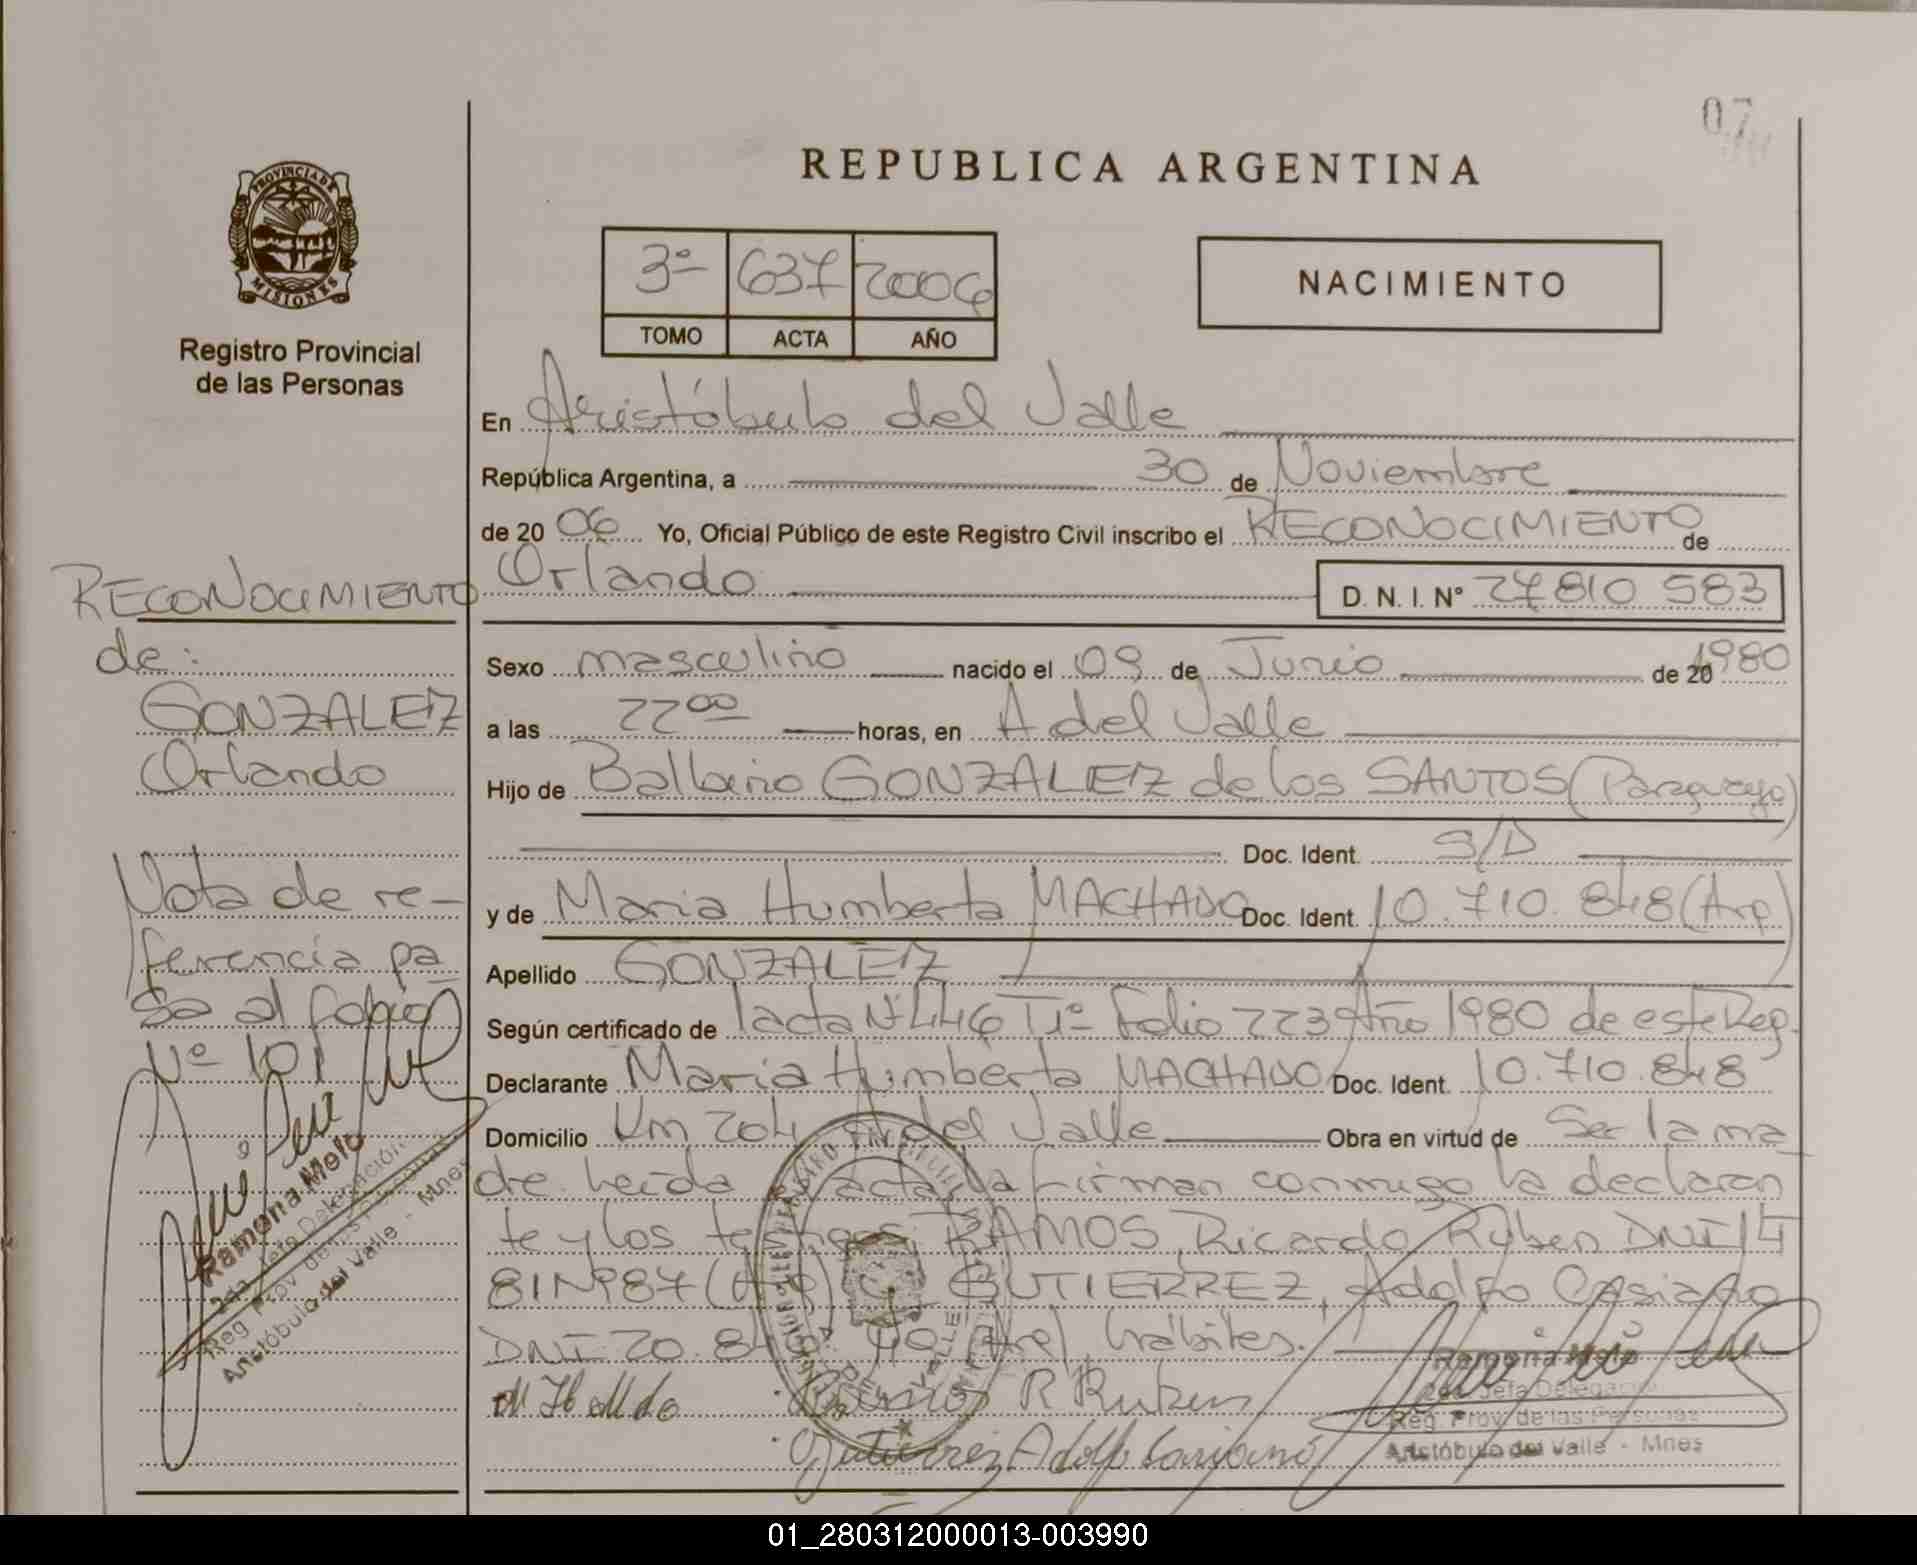 07
REPUBLICA ARGENTINA
PROVINCIA DE
MISIONES
Registro Provincial
de las Personas
3º 637 2006
TOMO ACTA AÑO
NACIMIENTO
En Aristóbulo del Valle
República Argentina, a 30 de Noviembre
de 20 06 Yo, Oficial Público de este Registro Civil inscribo el RECONOCIMIENTO de
Orlando D. N. I. Nº 27 810 583
Sexo masculino nacido el 09 de Junio de 20 1980
a las 22 00 horas, en A del Valle
Hijo de Balbino GONZALEZ de los SANTOS (Paraguayo)
Doc. Ident. S/D
y de Maria Humberta MACHADO Doc. Ident. 10.710.848 (Arg)
Apellido GONZALEZ
Según certificado de acta Nº 446 Tº 1º Folio 223 Año 1980 de este Reg.
Declarante Maria Humberta MACHADO Doc. Ident. 10.710.848
Domicilio Km 204 A del Valle Obra en virtud de Ser la ma
dre. Leída el acta la firman conmigo la declaran
te y los testigos RAMOS, Ricardo Ruben DNI 14
GUTIERREZ, Adolfo Casiano
DNI 20. hábiles.
M H Mdo Ramos R Ruben
Gutierrez Adolfo Casiano
Ramona Melo
2da. Jefa Delegación
Reg. Prov. de las Personas
Aristóbulo del Valle - Mnes
RECONOCIMIENTO
de:
GONZALEZ
Orlando
Nota de re-
ferencia pa
sa al folio
Nº 101
Ramona Melo
2da. Jefa Delegación
Reg Prov de las Personas
Aristóbulo del Valle - Mnes
01_280312000013-003990